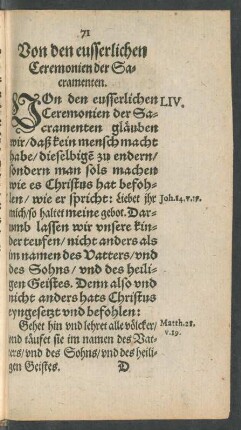 71
Von den eusserlichen
Ceremonien der Sa-
cramenten.
VOn den eusserlichen LIV.
Ceremonien der Sa-
cramenten gläuben
wir/ daß kein mensch macht
habe/ dieselbigẽ zu endern/
sondern man sols machen
wie es Christus hat befoh-
len/ wie er spricht: Liebet ihr Joh.14.v.15.
mich/ so haltet meine gebot. Dar-
umb lassen wir vnsere kin-
der teufen/ nicht anders als
im namen des Vatters/ vnd
des Sohns/ vnd des heili-
gen Geistes. Denn also vnd
nicht anders hats Christus
eyngesetzt vnd befohlen:
Gehet hin vnd lehret alle völcker/ Matth.28.
vnd täufet sie im namen des Vat- v.19.
ters/ vnd des Sohns/ vnd des heili-
gen Geistes. D